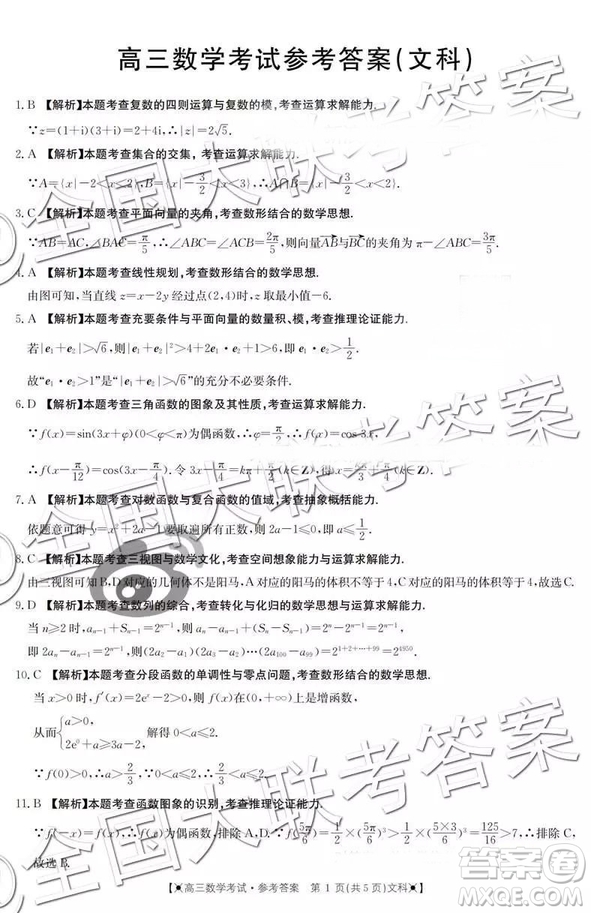 高三数学考试参考答案(文科)
1. B 【解析】本题考查复数的四则运算与复数的模,考查运算求解能力.
∵z=(1+i)(3+i)=2+4i,∴|z|=2√5.
2. A 【解析】本题考查集合的交集,考查运算求解能力.
∵A={x|-2<x<2},B={x|-3/2<x<3},∴A∩B={x|-3/2<x<2}.
3. C 【解析】本题考查平面向量的夹角,考查数形结合的数学思想.
∵AB=AC,∠BAC=π/5,∴∠ABC=∠ACB=2π/5,则向量AB与BC的夹角为π-∠ABC=3π/5.
4. A 【解析】本题考查线性规划,考查数形结合的数学思想.
由图可知,当直线z=x-2y经过点(2,4)时,z取最小值-6.
5. A 【解析】本题考查充要条件与平面向量的数量积、模,考查推理论证能力.
若|e₁+e₂|>√6,则|e₁+e₂|²>4+2e₁·e₂+1>6,即e₁·e₂>1/2.
故“e₁·e₂>1”是“|e₁+e₂|>√6”的充分不必要条件.
6. D 【解析】本题考查三角函数的图象及其性质,考查运算求解能力.
∵f(x)=sin(3x+φ)(0<φ<π)为偶函数,∴φ=π/2,∴f(x)=cos 3x,
∴f(x-π/12)=cos(3x-π/4).令3x-π/4=kπ+π/2(k∈Z),得x=kπ/3+π/4(k∈Z).
7. A 【解析】本题考查对数函数与复合函数的值域,考查抽象概括能力.
依题意可得y=x²+2a-1要取遍所有正数,则2a-1≤0,即a≤1/2.
8. C 【解析】本题考查三视图与数学文化,考查空间想象能力与运算求解能力.
由三视图可知B,D对应的几何体不是阳马,A对应的阳马的体积不等于4,C对应的阳马的体积等于4,故选C.
9. D 【解析】本题考查数列的综合,考查转化与化归的数学思想与运算求解能力.
当n≥2时,aₙ₋₁+Sₙ₋₁=2ⁿ⁻¹,则aₙ-aₙ₋₁+Sₙ-Sₙ₋₁=2ⁿ-2ⁿ⁻¹=2ⁿ⁻¹,
即2aₙ-aₙ₋₁=2ⁿ⁻¹,则(2a₂-a₁)(2a₃-a₂)…(2a₁₀₀-a₉₉)=2¹⁺²⁺…⁺⁹⁹=2⁴⁹⁵⁰.
10. C 【解析】本题考查分段函数的单调性与零点问题,考查数形结合的数学思想.
当x>0时,f′(x)=2eˣ-2>0,则f(x)在(0,+∞)上是增函数,
从而{a>0, 2e⁰+a≥2a, 解得0<a≤2.
∵f(0)>0,∴a>2/3,∴2/3<a≤2.
11. B 【解析】本题考查函数图象的识别,考查推理论证能力.
∵f(-x)=f(x),∴f(x)为偶函数,排除A,D.∵f(5π/6)=1/2×(5π/6)³>1/2×(5×3/6)³=125/16>7,∴排除C,
故选B.
高三数学考试·参考答案 第 1 页(共 5 页)文科
全国大联考答案
MXQE.COM